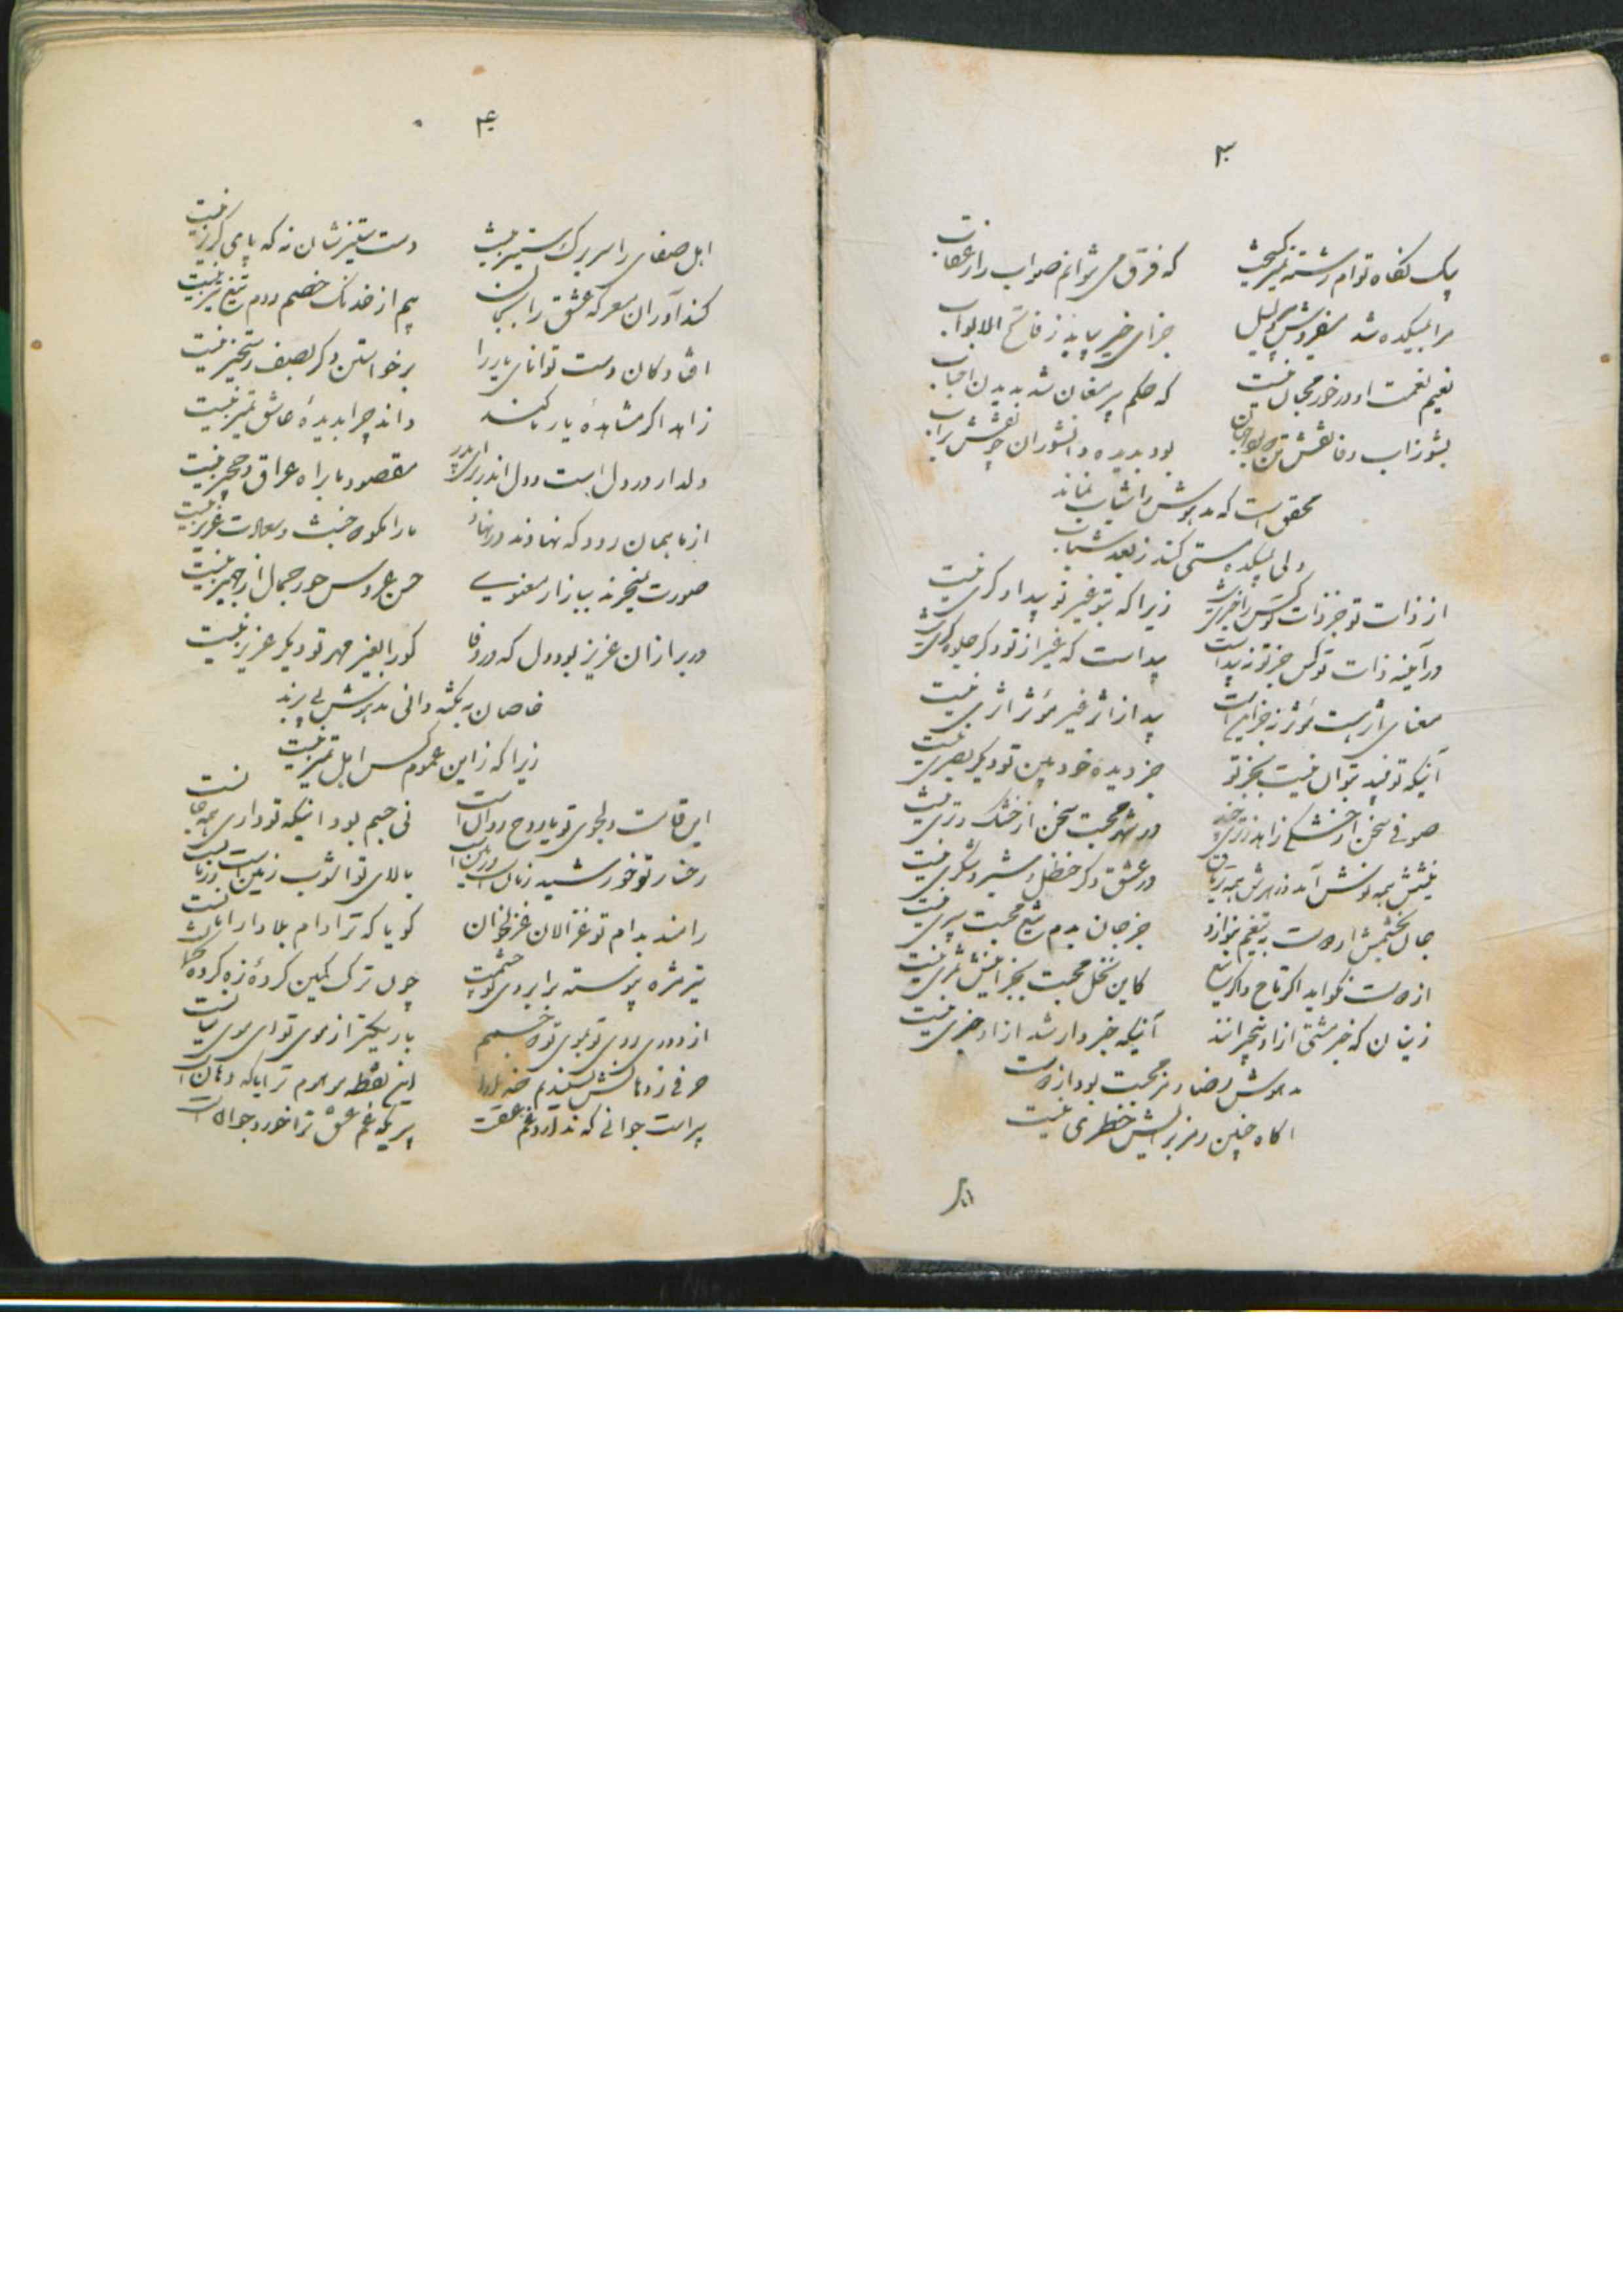 ۳
یک نگاه توام رشته تمیز کسیخت که فرق می نتوانم صواب را ز عقاب
مرا بمیکده شد میفروش دلیل جزای خیر بیابد ز فاتح الابواب
نعیم نعمت او در خور مجال نیست که حکم پیر مغان شد بدیدن احباب
بشوز اب وفا نقش بود بدیده دانشوران چو نقش براب
محقق است که مدهوش را شباب نماند
ولی بمیکده مستی کند ز بعد شباب
از ذات تو جز ذات تو کس را خبری نیست زیرا که بتو غیر تو پیدا دگری نیست
در آینه ذات تو کس جز تو نه پیداست پیداست که غیر از تو دگر جلوه گری نیست
معنای اثر هست مؤثر نه جز این است پیدا ز اثر غیر مؤثر اثری نیست
آنیکه تو دید بتوان نیست بجز تو جز دیده خود بین تو دیگر بصری نیست
صوفی سخن از خشکی زاهد در شهر محبت سخن از خشک و تری نیست
نیشش همه نوش آمد و زهرش همه تریاق در عشق دگر حنظل و شیر و شکری نیست
جان بخشمش ار دوست به تیغم بنوازد جز جان بدم تیغ محبت سپری نیست
از دوست نخواهد اگر تاج و اگر تیغ کاین نخل محبت بجز اینش ثمری نیست
زینان که خبر مشتی از او بیخبرانند آنیکه خبردار شد از او خبری نیست
مدهوش رضا رمز محبت بود از دوست
اگاه چنین رمز برایش خطری نیست
۴
اهل صفای را سر برک ستیز نیست دست ستیزشان نه که پای گریز نیست
کندآوران معرکه عشق را بجان بیم از خدنک خصم و دم تیغ تیز نیست
افتادکان دست توانای یار را برخواستن دگر بصف رستخیز نیست
زاهد اگر مشاهدهٔ یار ما کند داند چرا بدیدهٔ عاشق تمیز نیست
دلدار در دل است و دل اندر مقصود ما براه عراق و حجیز نیست
از ما همان رود که نهادند در نهاد ما را نکوه خبث و سعادت غریز نیست
صورت نمیخرند ببازار معنوی حسن عروس حور جمال از جهیز نیست
در بر ازان عزیز بود دل که در وفا کو را بغیر مهر تو دیگر عزیز نیست
خاصان به نکته دانی مدهوش پی برند
زیرا که زاین عموم کس اهل تمیز نیست
این قامت دلجوی تو یا روح روان است نی جسم بود اینکه تو داری همه جان است
رخسار تو خورشید زمان است بالای تو اشوب زمین است و زمان است
رامند بدام تو غزالان غزلخوان گویا که ترا دام بلا دار امان است
تیر مژه پیوسته بر ابروی تو چشمت چون ترک کمین کردهٔ زه کرده کمان است
از دوری روی تو بموی تو که جسمم باریکتر از موی تو ای موی میان است
حرفی ز دهانش نشنیدیم این نقطه موهوم ترا یا که دهان است
پیر است جوانی که ندارد غم عشقت پیری که غم عشق ترا خورد جوان است